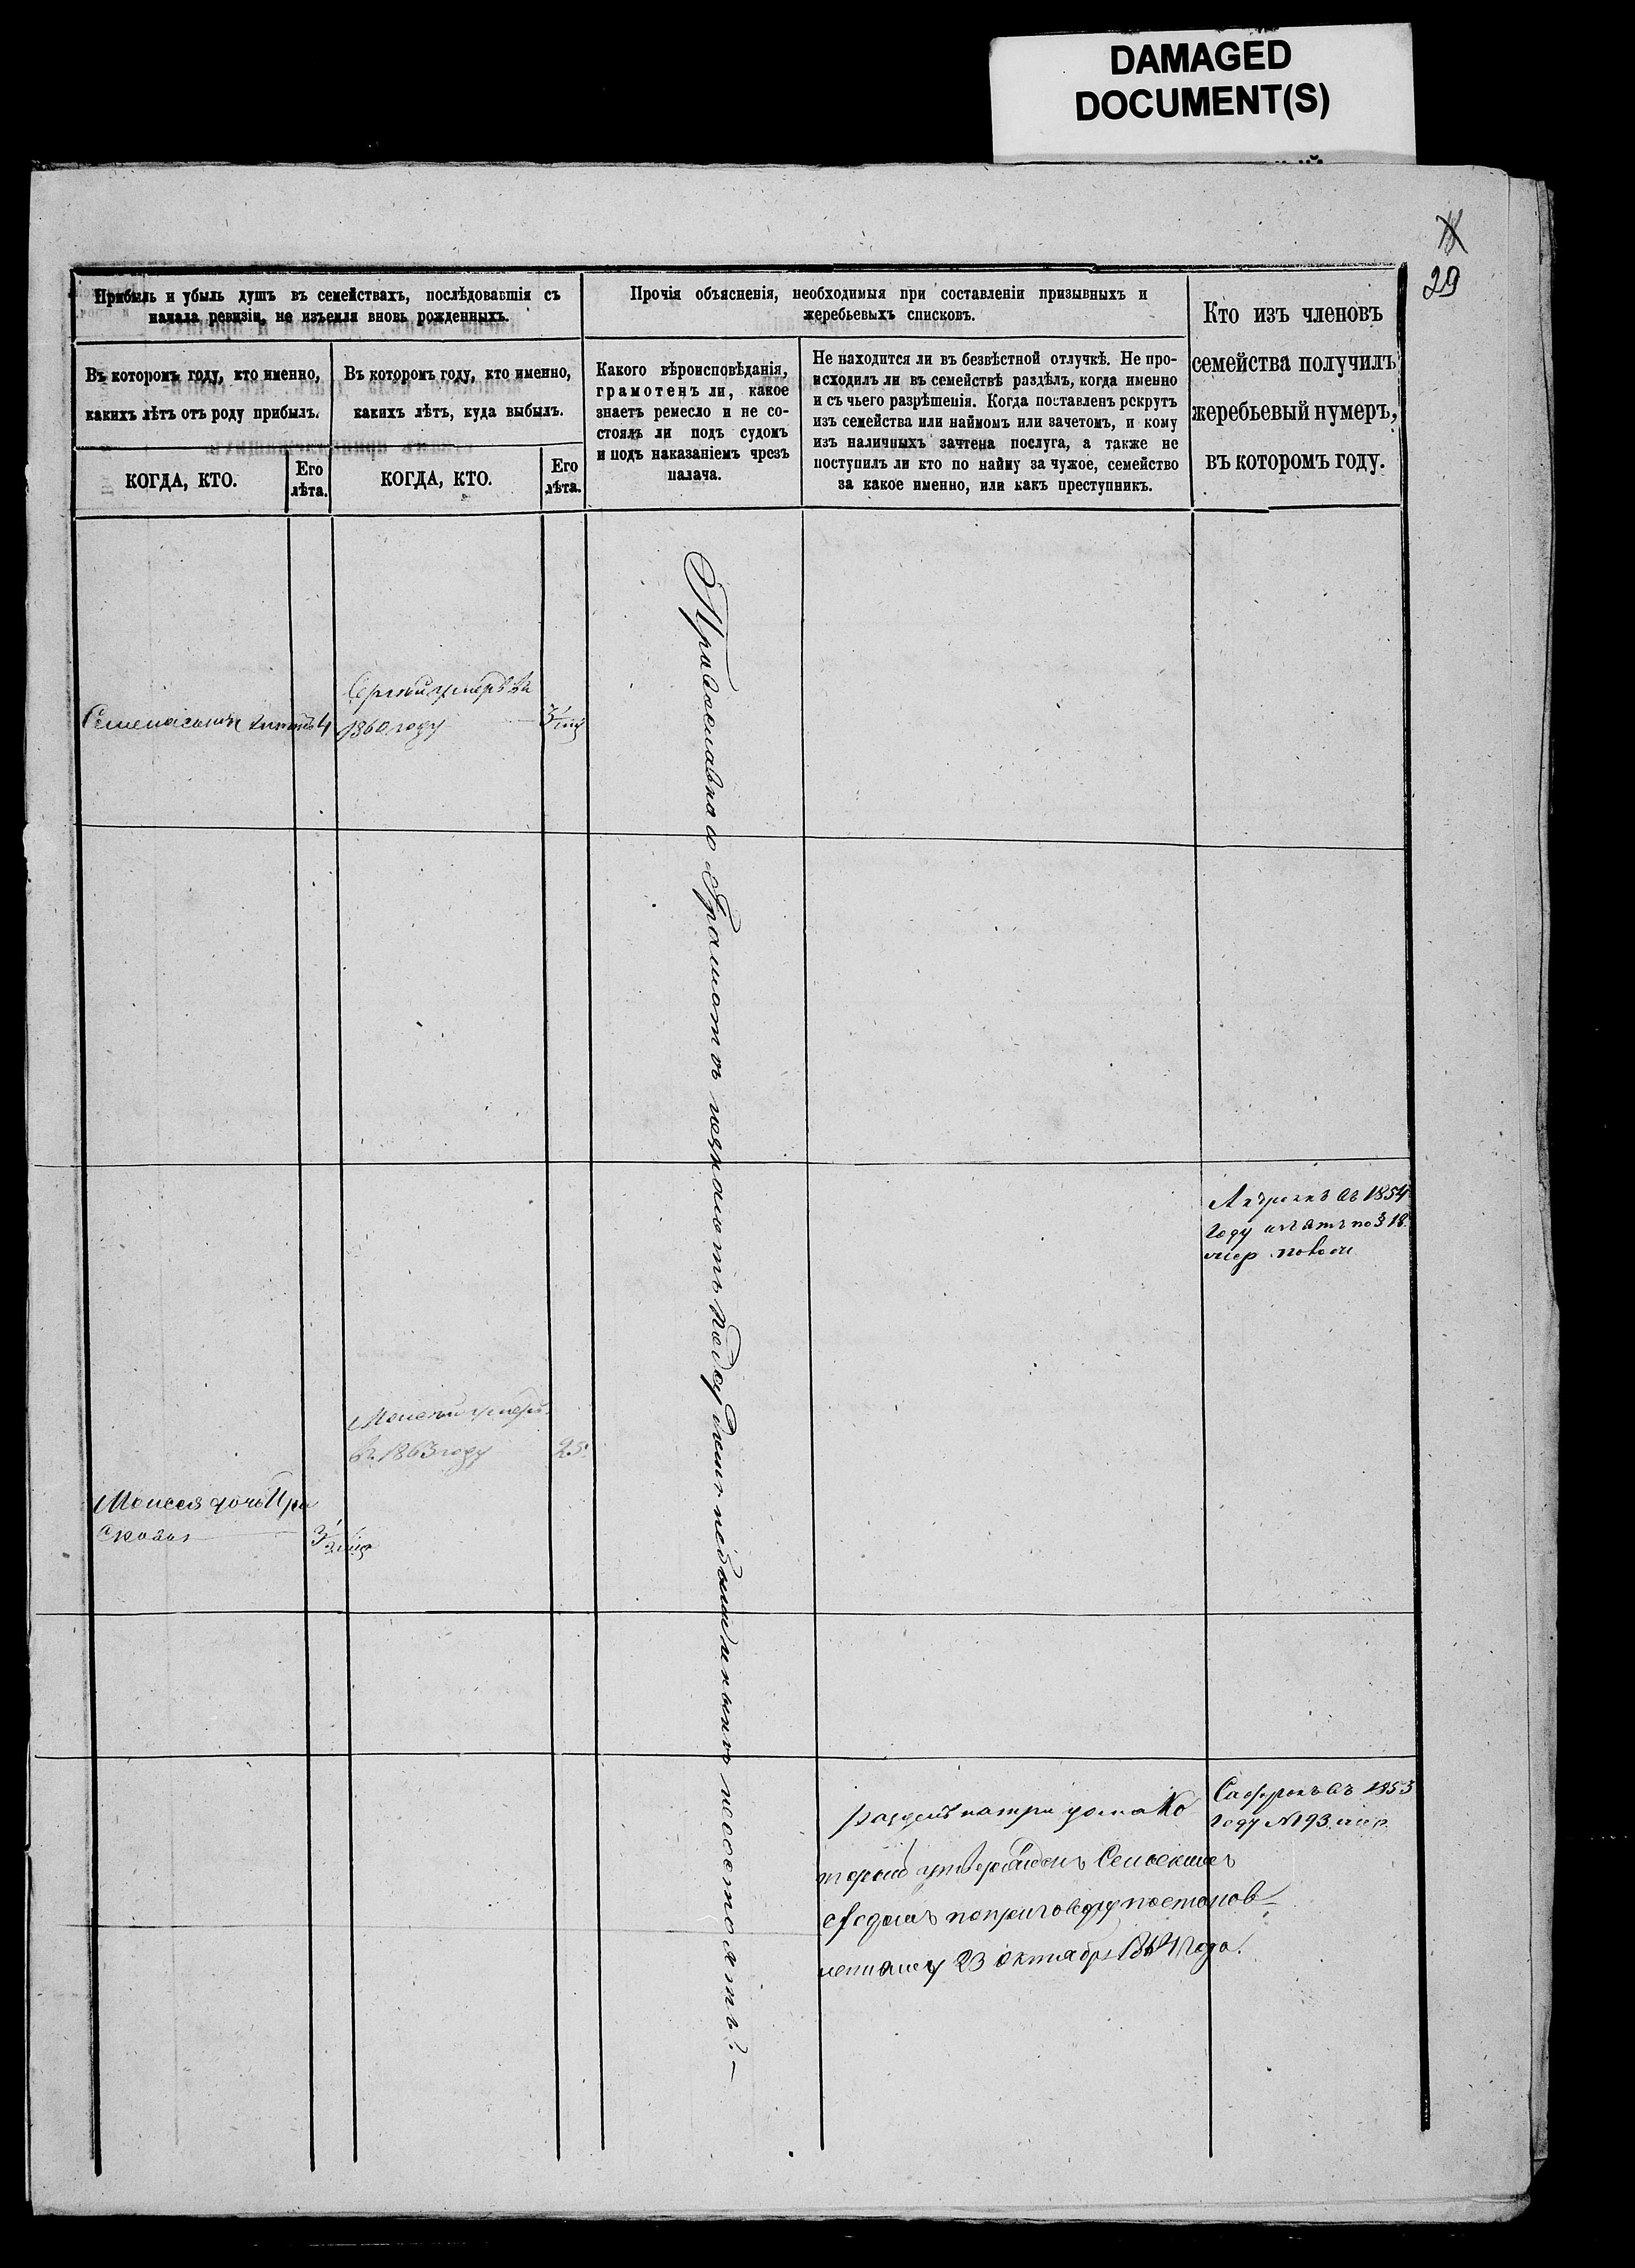 DAMAGED
DOCUMENT(S)
29
Прибыль и убыль душъ въ семействахъ, послѣдовавшія съ
начала ревизіи, не изъемля вновь рожденныхъ.
Прочія объясненія, необходимыя при составленіи призывныхъ и
жеребьевыхъ списковъ.
Кто изъ членовъ
семейства получилъ
жеребьевый нумеръ,
въ которомъ году.
Въ которомъ году, кто именно,
какихъ лѣтъ отъ роду прибылъ.
Въ которомъ году, кто именно,
какихъ лѣтъ, куда выбылъ.
Какого вѣроисповѣданія,
грамотенъ ли, какое
знаетъ ремесло и не со-
стоялъ ли подъ судомъ
и подъ наказаніемъ чрезъ
палача.
Не находится ли въ безвѣстной отлучкѣ. Не про-
исходилъ ли въ семействѣ раздѣлъ, когда именно
и съ чьего разрѣшенія. Когда поставленъ рекрутъ
изъ семейства или наймомъ или зачетомъ, и кому
изъ наличныхъ зачтена послуга, а также не
поступилъ ли кто по найму за чужое, семейство
за какое именно, или какъ преступникъ.
КОГДА, КТО.
Его
лѣта.
КОГДА, КТО.
Его
лѣта.
Сергей умеръ въ
1860 году
4
Православно Грамотъ незнаютъ Подсудомъ небыли и нынѣ несостоятъ.
въ 1854
году по § 18
Моисей умеръ
въ 1863 году
25
Моисея дочь Пра
сковья
3
раздел на три дома Ко
торый утвержденъ Сельскимъ
сходомъ по приговору постанов
ленному 23 октября года.
Сафронъ въ 1853
году № 93